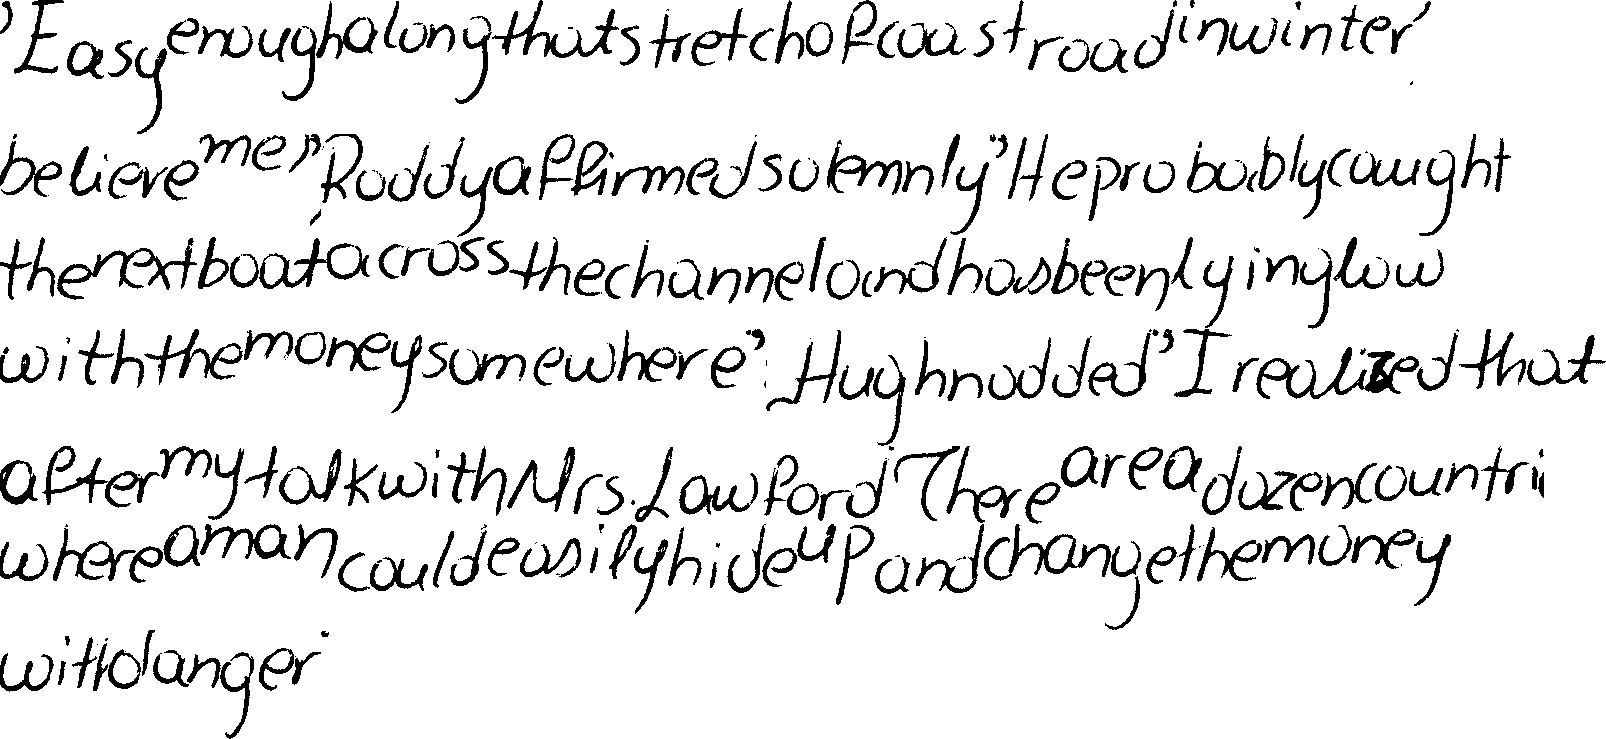 'Easy enough along that stretch of coast road in winter,
believe me," Roddy affirmed solemnly "He probably caught
the next boat across the channel and has been lying low
with the money somewhere". Hugh nodded "I realized that
after my talk with Mrs. Lawford There are a dozen
where a man could easily hide up and change the money
danger